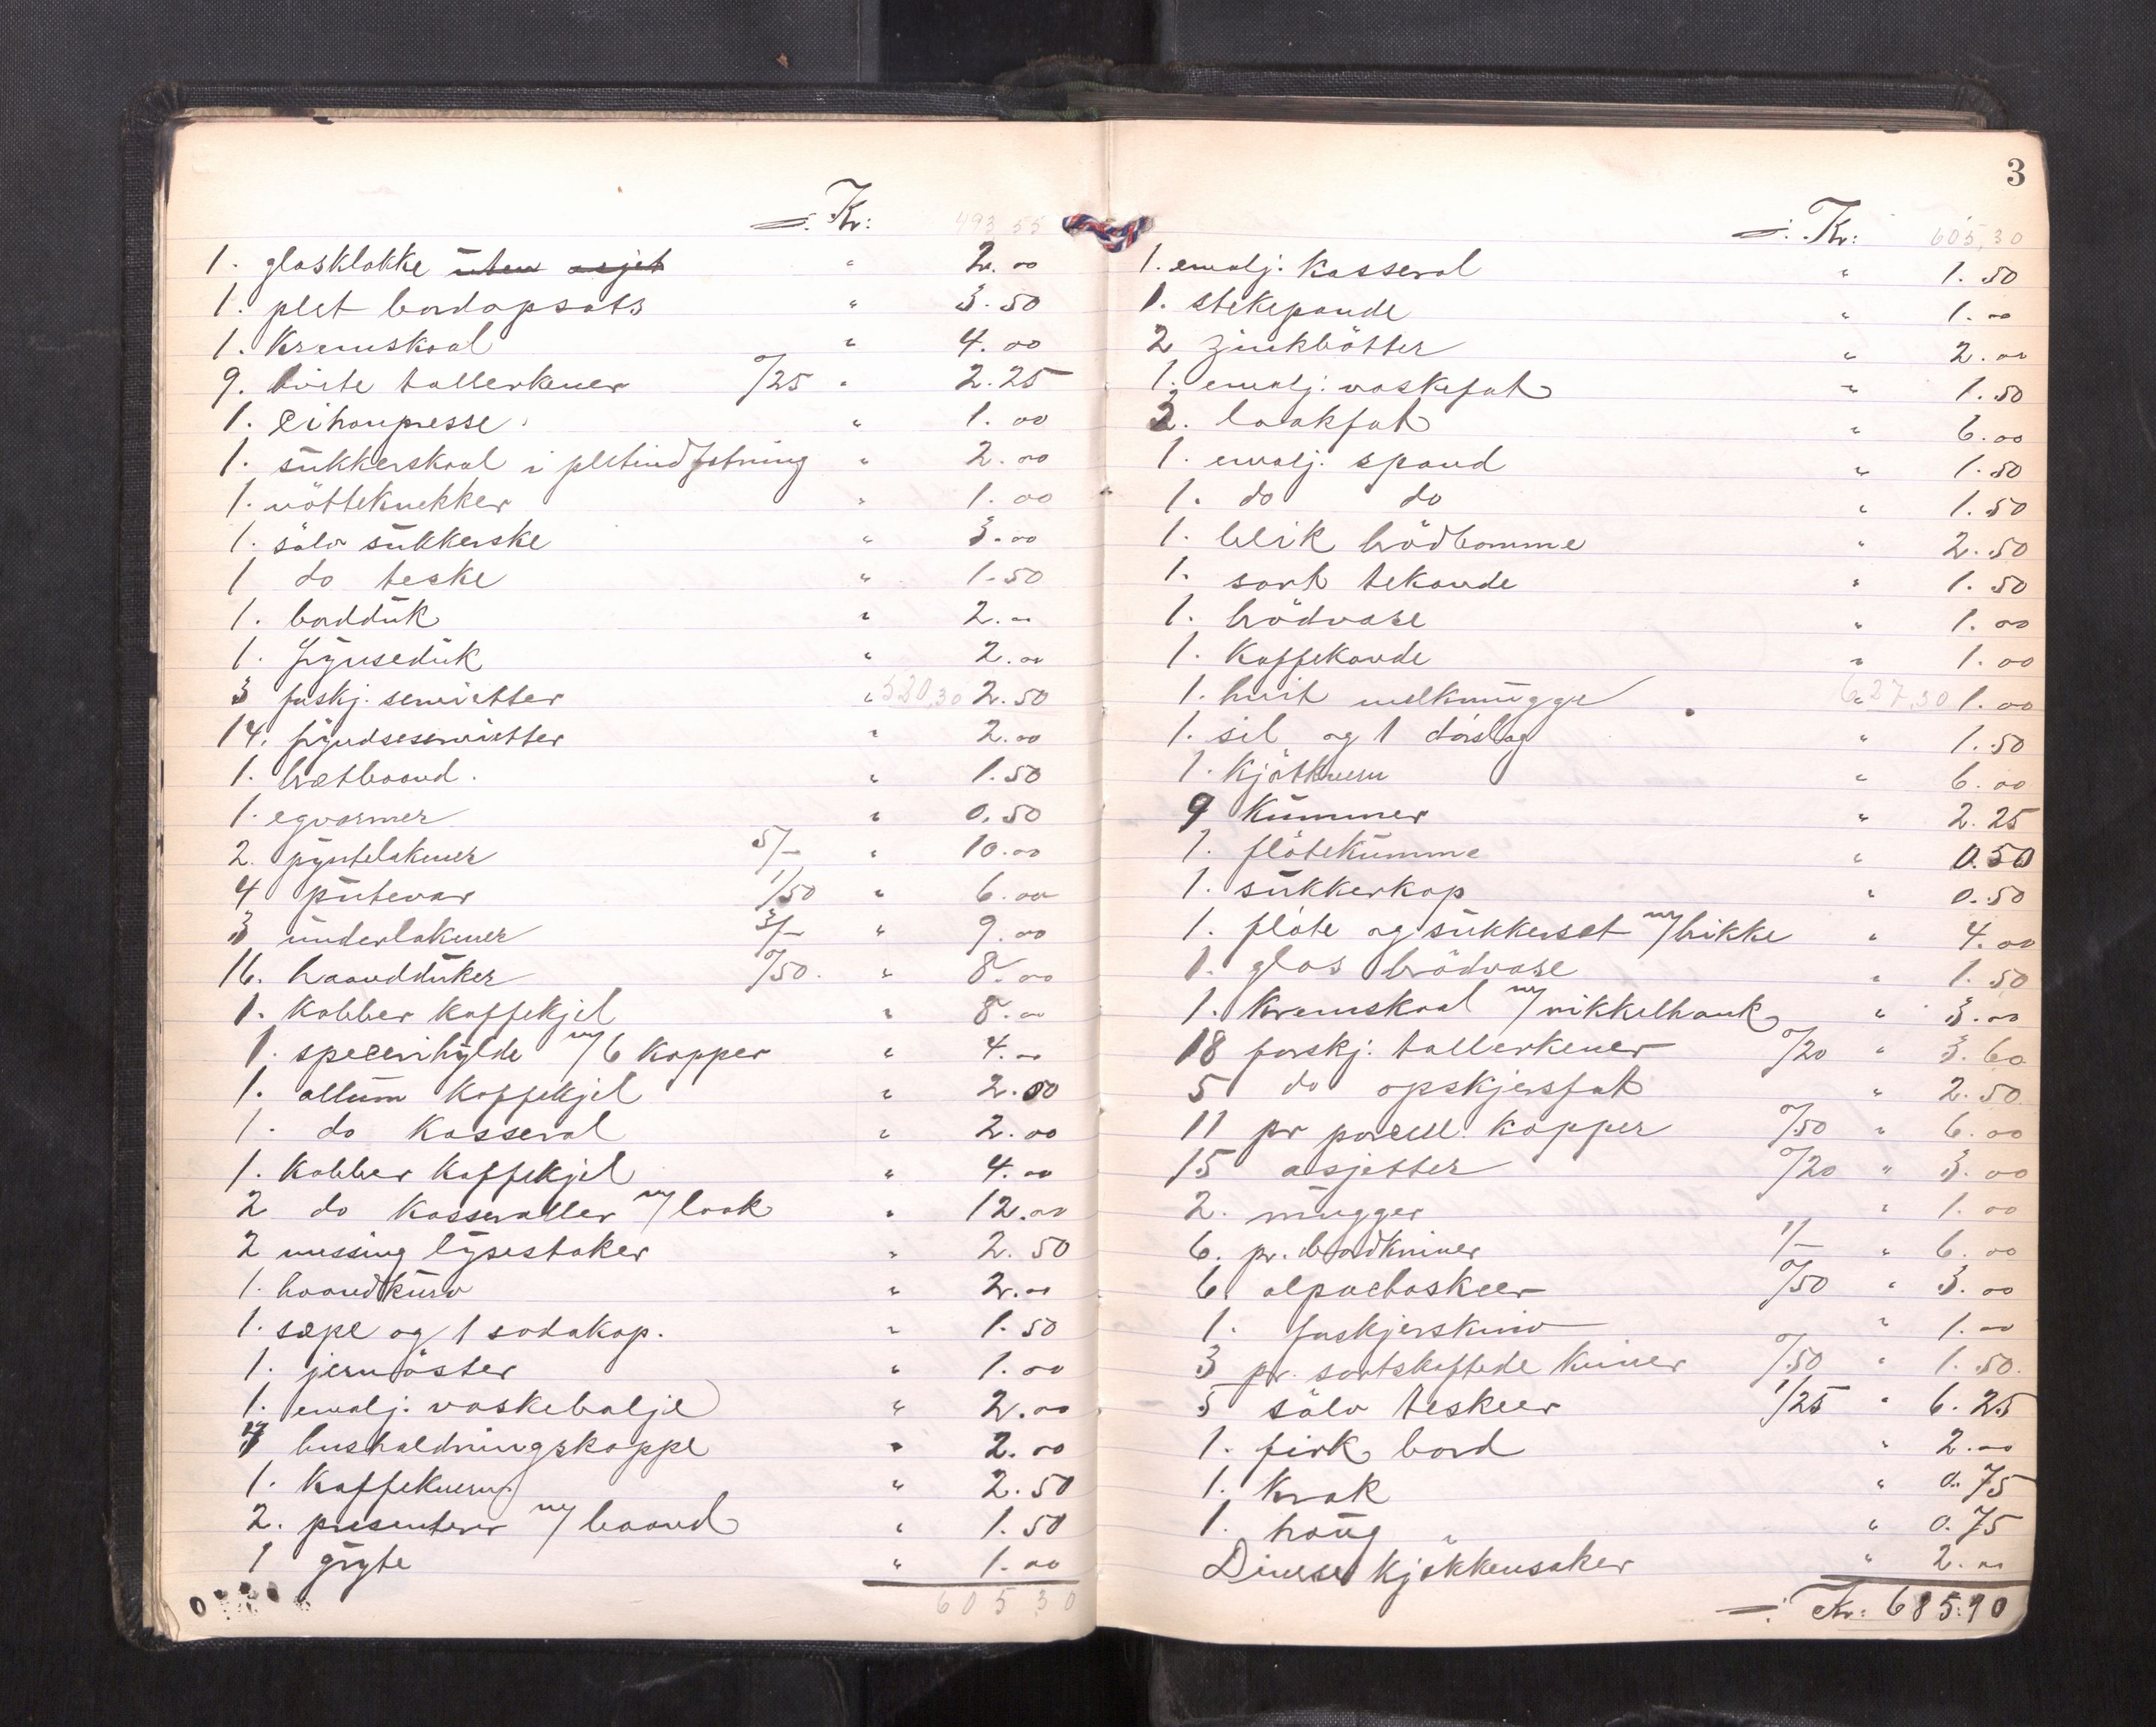 =. Kr: 493 55
1. glasklokke uten asjet " 2.00
1. plet bordopsats " 3.50
1. Kremskaal " 4.00
9. hvite tallerkener 0/25 " 2.25
1. Citronpresse. " 1.00
1. sukkerskaal i pletindfatning " 2.00
1. nötteknekker " 1.00
1. sölv sukkerske " 3.00
1 do teske " 1.50
1. bordduk " 2.00
1. frynseduk " 2.00
3 forskj. servietter " 520,30 2.50
14. fryndseservietter " 2.00
1. bretbaand. " 1.50
1. egvarmer " 0.50
2. pyntelakener 5/- " 10.00
4 putevar 1/50 " 6.00
3 underlakener 3/- " 9.00
16. haandduker 0/50. " 8.00
1. Kobber Kaffekjel " 8.00
1. specerihylde m/ 6 Kopper " 4.00
1. allum Kaffekjel " 2.00
1. do Kasserol " 2.00
1. Kobber Kaffekjel " 4.00
2 do Kasseroller m/ look " 12.00
2 messing lysestaker " 2.50
1. haandkurv " 2.00
1. sæpe og 1 sodakop. " 1.50
1. jernöster " 1.00
1. emalj. vaskebalje " 2.00
husholdningskoppe " 2.00
1. Kaffekvern " 2.50
2. presenterer m/ haand " 1.50
1 gryte " 1.00
605 30
3
=. Kr: 605,30
1. emalj. Kasserol " 1.50
1. stekepande " 1.00
2 zinkbötter " 2.00
1. emalj. vaskefat " 1.50
2. laakfat " 6.00
1. emalj. spand " 1.50
1. do do " 1.50
1. blik brödbomme " 2.50
1. sort tekande " 1.50
1. brödvase " 1.00
1. Kaffekande " 1.00
1. hvit melkmugge " 627,30 1.00
1. sil og 1 dörslag " 1.50
1. Kjötkvern " 6.00
9 Kummer " 2.25
1. flötekumme " 0.50
1. sukkerkop " 0.50
1. flöte og sukkerset m/ brikke " 4.00
1. glas brödvase " 1.50
1. Kremskaal m/ nikkelhank " 3.00
18 forskj. tallerkener 0/20 " 3.60
5 do opskjersfat " 2.50
11 pr porcell. Kopper 0/50 " 6.00
15 asjetter 0/20 " 3.00
2. mugger " 1.00
6. pr. bordkniver 1/- " 6.00
6 alpacaskeer 0/50 " 3.00
1. forskjerskniv " 1.00
3 pr. sortskaftede Kniver 0/50 " 1.50.
5 sölv teskeer 1/25 " 6.25
1. firk bord " 2.00
1. Krak " 0.75
1. " 0.75
Diverse Kjökkensaker " 2.00
=. Kr: 685:90